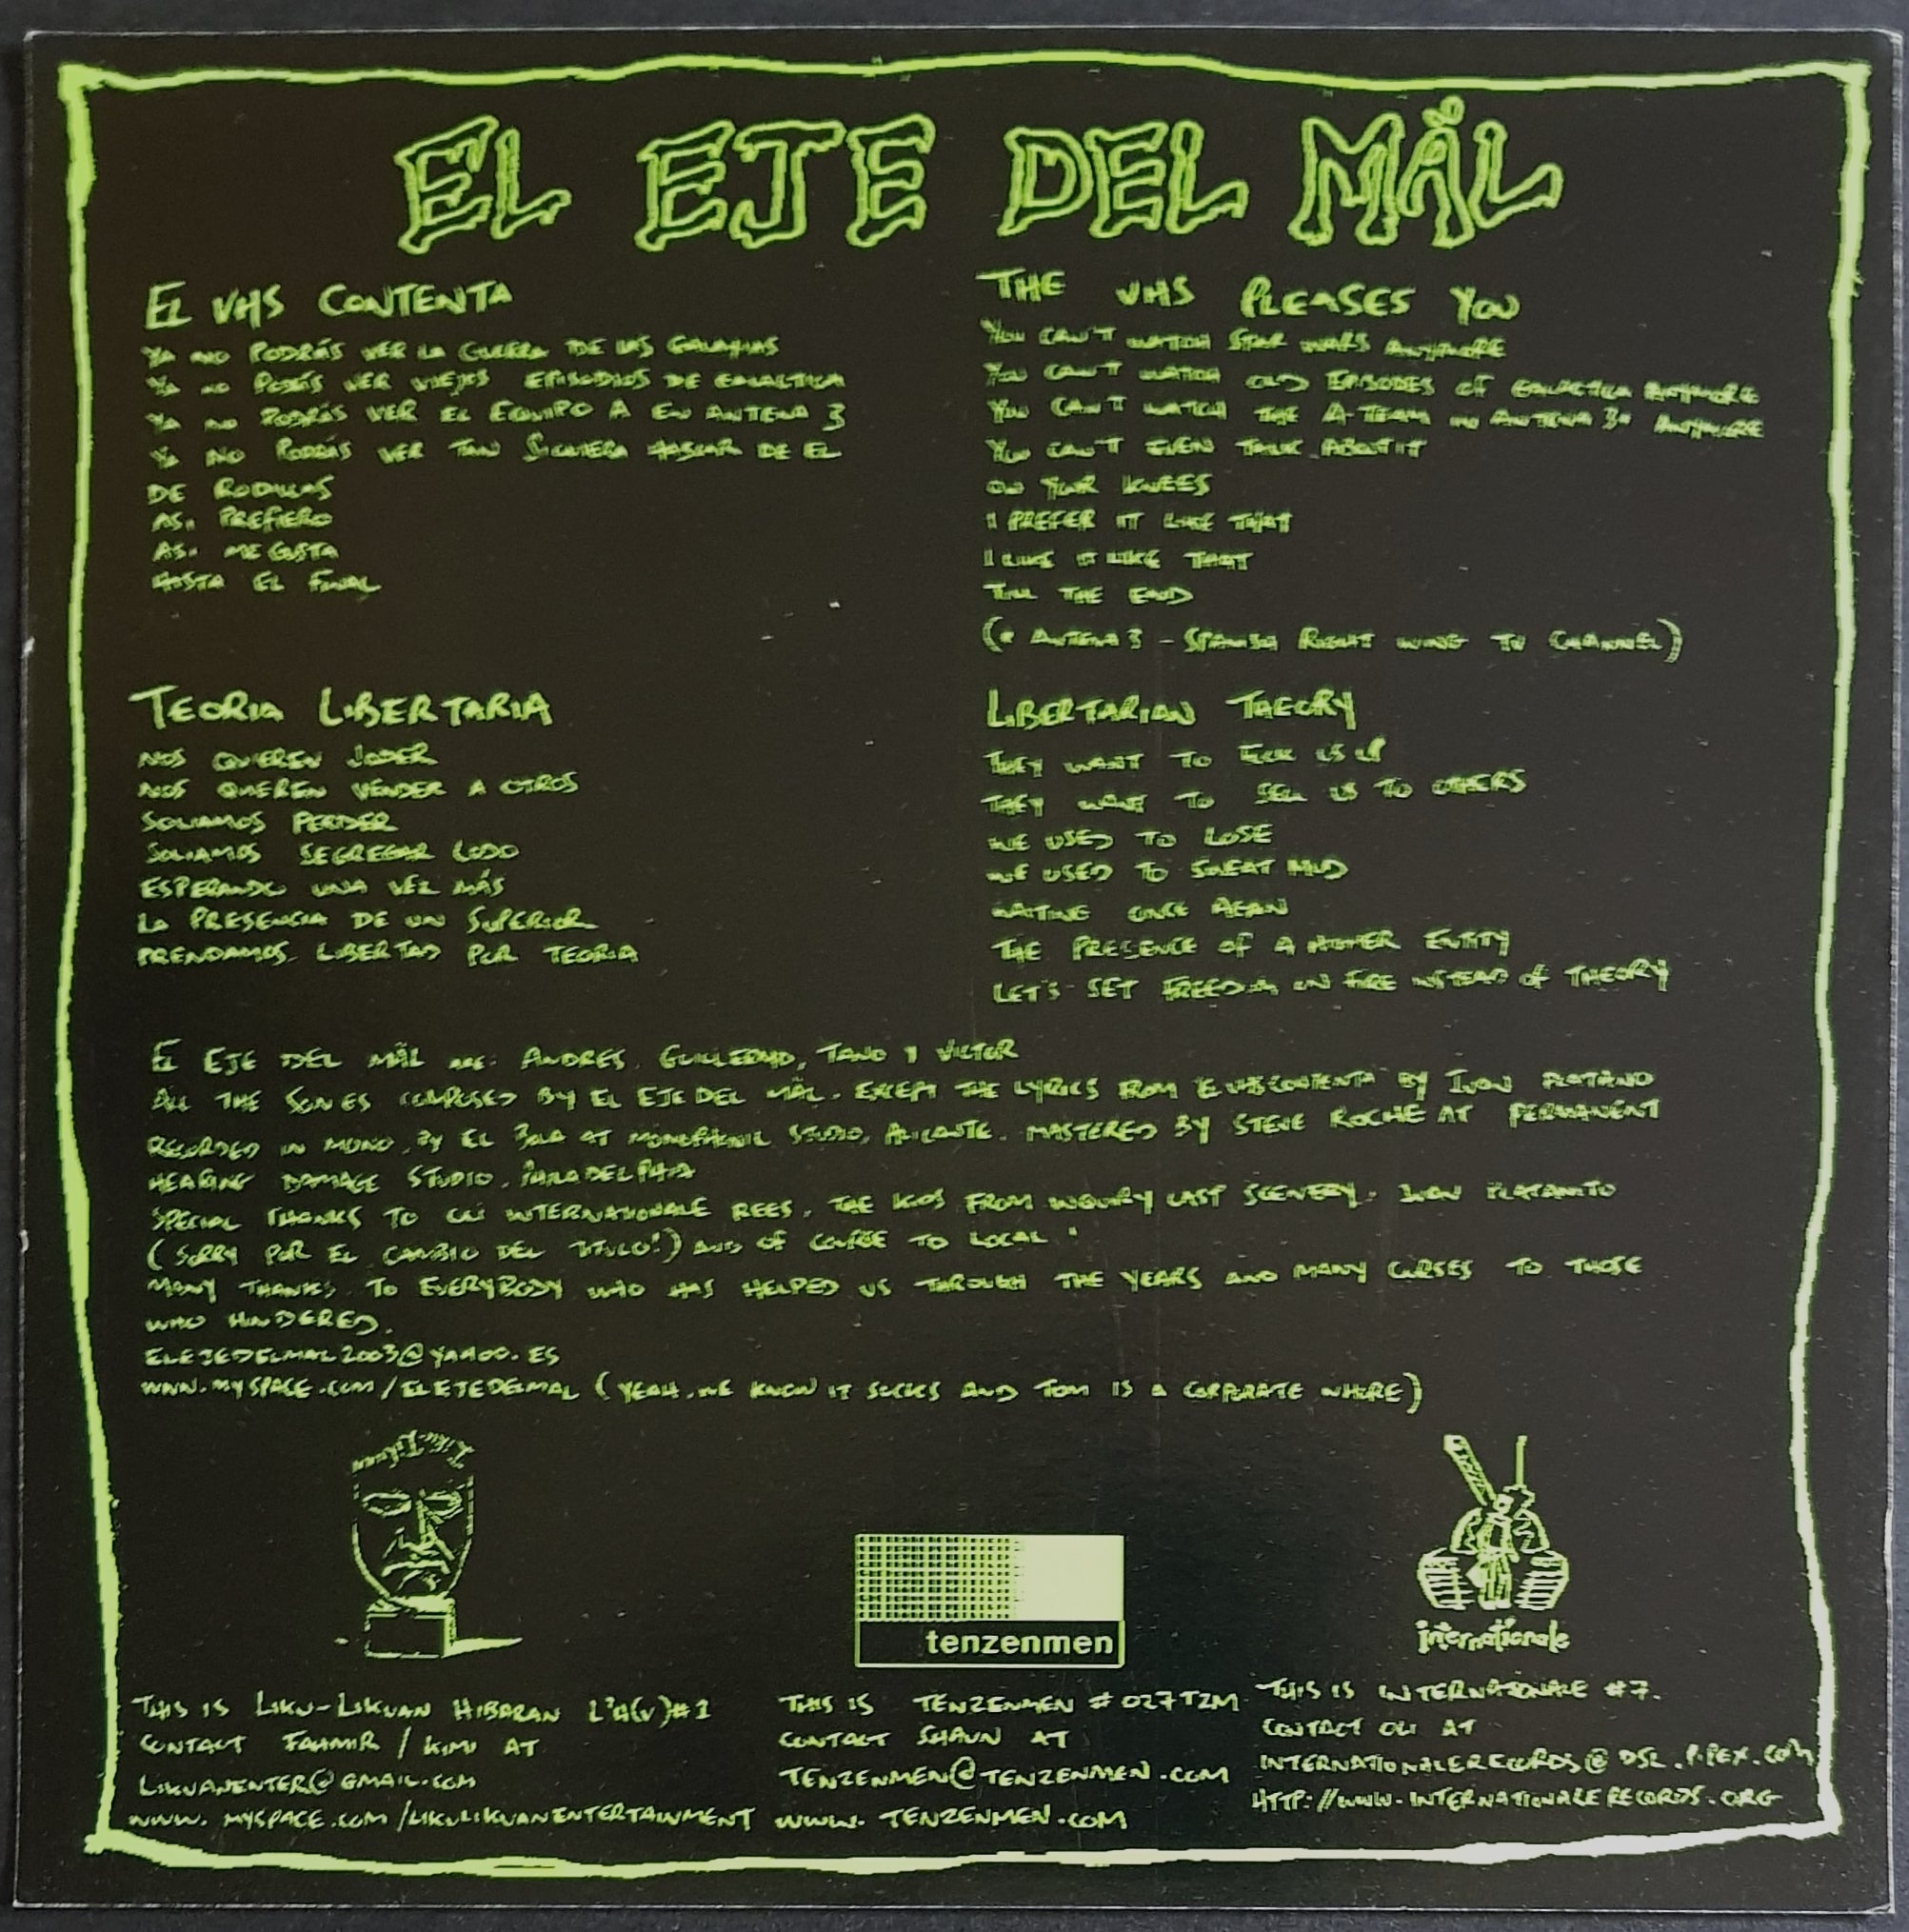 EL EJE DEL MÅL
EL VHS CONTENTA
YA NO PODRÁS VER LA GUERRA DE LAS GALAXIAS
YA NO PODRÁS VER VIEJOS EPISODIOS DE GALACTICA
YA NO PODRÁS VER EL EQUIPO A EN ANTENA 3
YA NO PODRÁS VER TAN SIQUIERA HABLAR DE EL
DE RODILLAS
ASI PREFIERO
ASI ME GUSTA
HASTA EL FINAL
THE VHS PLEASES YOU
YOU CAN'T WATCH STAR WARS ANYMORE
YOU CAN'T WATCH OLD EPISODES OF GALACTICA ANYMORE
YOU CAN'T WATCH THE A-TEAM IN ANTENA 3* ANYMORE
YOU CAN'T EVEN TALK ABOUT IT
ON YOUR KNEES
I PREFER IT LIKE THAT
I LIKE IT LIKE THAT
TILL THE END
(* ANTENA 3 - SPANISH RIGHT WING TV CHANNEL)
TEORIA LIBERTARIA
NOS QUIEREN JODER
NOS QUIEREN VENDER A OTROS
SOLIAMOS PERDER
SOLIAMOS SEGREGAR LODO
ESPERANDO UNA VEZ MÁS
LA PRESENCIA DE UN SUPERIOR
PRENDAMOS LIBERTAD POR TEORIA
LIBERTARIAN THEORY
THEY WANT TO FUCK US UP
THEY WANT TO SELL US TO OTHERS
WE USED TO LOSE
WE USED TO SWEAT MUD
WAITING ONCE AGAIN
THE PRESENCE OF A HIGHER ENTITY
LET'S SET FREEDOM ON FIRE INSTEAD OF THEORY
EL EJE DEL MÅL ARE: ANDRES, GUILLERMO, TANO Y VICTOR
ALL THE SONGS COMPOSED BY EL EJE DEL MÅL. EXCEPT THE LYRICS FROM "EL VHS CONTENTA" BY IVAN PLATANO
RECORDED IN MONO BY EL BOLA AT STUDIO, ALICANTE. MASTERED BY STEVE ROCHE AT PERMANENT
HEARING DAMAGE STUDIO, PHILADELPHIA
SPECIAL THANKS TO OLI INTERNATIONALE RECS, THE KIDS FROM INQUIRY LAST SCENERY, IVAN PLATANITO
(SORRY POR EL CAMBIO DEL TITULO!) AND OF COURSE TO LOCAL
MANY THANKS TO EVERYBODY WHO HAS HELPED US THROUGH THE YEARS AND MANY CURSES TO THOSE
WHO HINDERED.
ELEJEDELMAL2003@YAHOO.ES
WWW.MYSPACE.COM/ELEJEDELMAL (YEAH, WE KNOW IT SUCKS AND TOM IS A CORPORATE WHORE)
tenzenmen
internationale
THIS IS LIKU-LIKUAN HIBARAN L²H(V)#1
CONTACT FAHMIR / KIMI AT
LIKUANENTER@GMAIL.COM
WWW.MYSPACE.COM/LIKULIKUANENTERTAINMENT
THIS IS TENZENMEN #027TZM
CONTACT SHAUN AT
TENZENMEN@TENZENMEN.COM
WWW.TENZENMEN.COM
THIS IS INTERNATIONALE #7.
CONTACT OLI AT
INTERNATIONALERECORDS@DSL.PIPEX.COM
HTTP://WWW.INTERNATIONALERECORDS.ORG